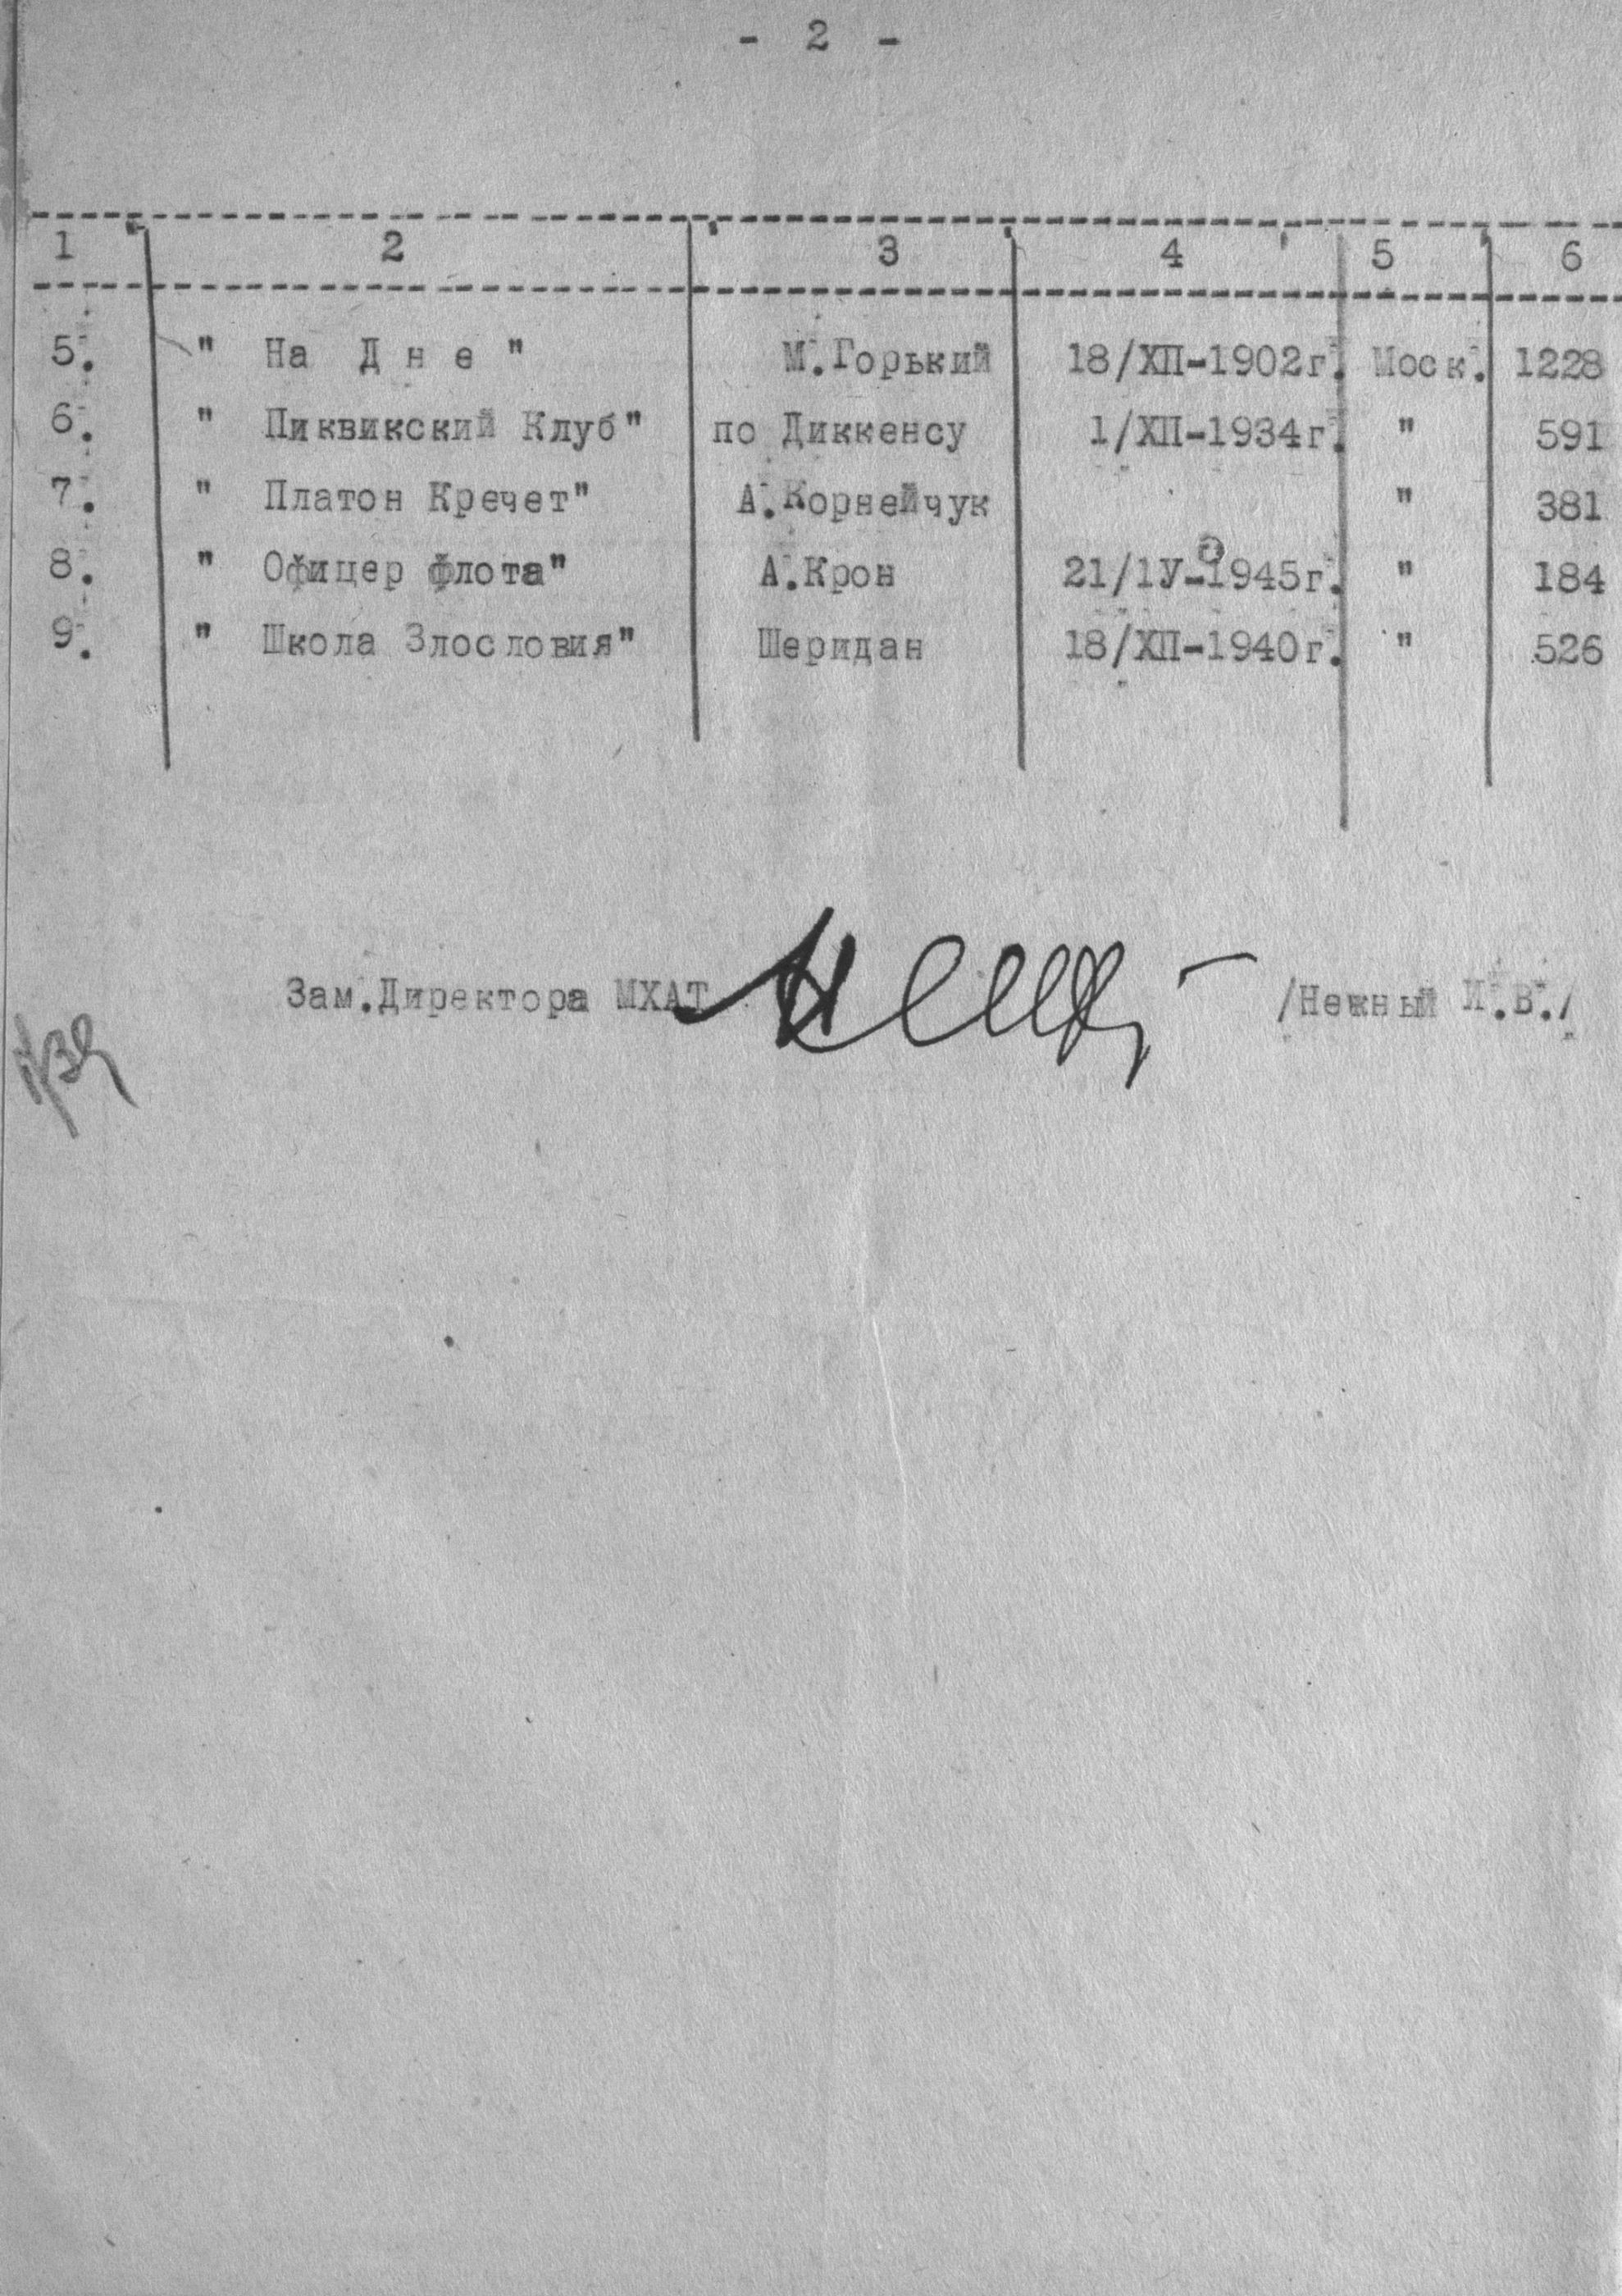 - 2 -
1 2 3 4 5 6
5. " На Дне" М.Горький 18/ХП-1902г. Моск. 1228
6. " Пиквикский Клуб" по Диккенсу 1/ХП-1934г. " 591
7. " Платон Кречет" А.Корнейчук " 381
8. " Офицер флота" А.Крон 21/1У-1945г. " 184
9. " Школа Злословия" Шеридан 18/ХП-1940г. " 526
Зам.Директора МХАТ /Нежный И.В./